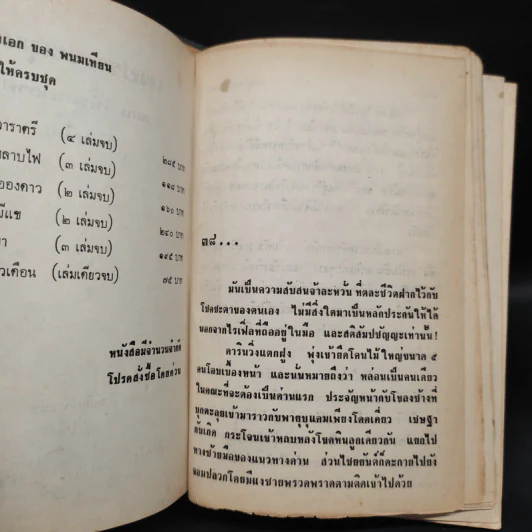 เอก ของ พนมเทียน
ให้ครบชุด
าราตรี (๔ เล่มจบ) ๒๘๕ บาท
หลาบไฟ (๓ เล่มจบ) ๑๑๘ บาท
ละอองดาว (๒ เล่มจบ) ๑๖๐ บาท
(๒ เล่มจบ) ๒๔๐ บาท
(๓ เล่มจบ) ๑๙๕ บาท
วเดือน (เล่มเดียวจบ) ๗๕ บาท
หนังสือมีจำนวนจำกัด
โปรดสั่งซื้อโดยด่วน
๓๘...
มันเป็นความสับสนจ้าละหวั่น ที่ต่ละชีวิตฝากไว้กับ
โชคชะตาของตนเอง ไม่มีสิ่งใดมาเป็นหลักประกันให้ได้
นอกจากไรเฟิลที่ถืออยู่ในมือ และสติสัมปชัญญะเท่านั้น!
ดารินวิ่งแตกฝูง พุ่งเข้ายึดโคนไม้ใหญ่ขนาด ๕
คนโอบเบื้องหน้า และนั่นหมายถึงว่า หล่อนเป็นคนเดียว
ในคณะที่จะต้องเป็นด่านแรก ประจัญหน้ากับโขลงช้างที่
บุกตะลุยเข้ามาราวกับพายุบุแคมเพียงโดดเดี่ยว เชษฐา
กับเกิด กระโจนเข้าหลบหลังโขดหินลูกเดียวกัน แยกไป
ทางซ้ายมือของแนวทางด่าน ส่วนไชยยันต์ก็ตะกายไปยัง
จอมปลวกโดยมีแงซายพรวดพราดตามติดเข้าไปด้วย